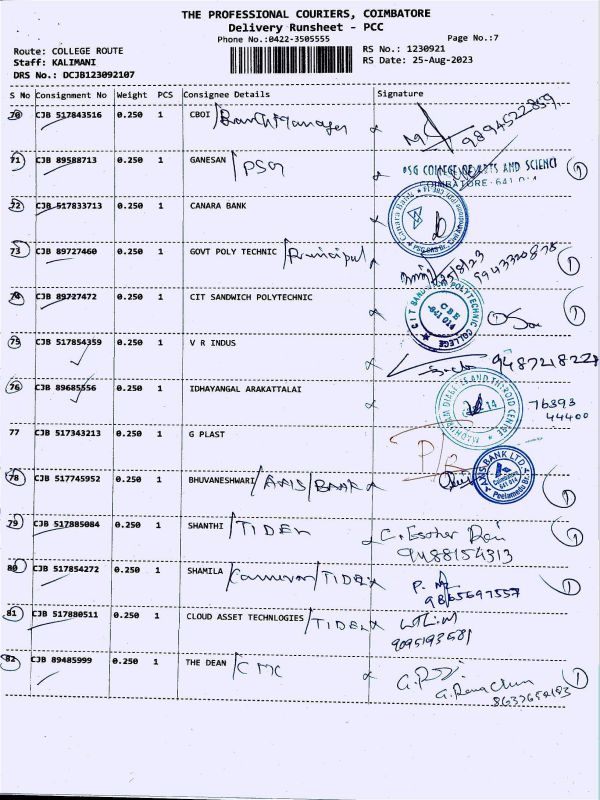 THE PROFESSIONAL COURIERS, COIMBATORE
Delivery Runsheet - PCC
Phone No.:0422-3505555
Page No.:7
Route: COLLEGE ROUTE
RS No.: 1230921
Staff: KALIMANI
RS Date: 25-Aug-2023
DRS No.: DCJB123092107
S No Consignment No Weight PCS Consignee Details Signature
70 CJB 517843516 0.250 1 CBOI / Bank Manager
9894522859
71 CJB 89588713 0.250 1 GANESAN / PSG
PSG COLLEGE OF ARTS AND SCIENCE
COIMBATORE - 641 014
72 CJB 517833713 0.250 1 CANARA BANK
Canara Bank
73 CJB 89727460 0.250 1 GOVT POLY TECHNIC / Principal
25/8/23
9943320878
74 CJB 89727472 0.250 1 CIT SANDWICH POLYTECHNIC
CIT SANDWICH POLYTECHNIC COLLEGE
CBE
641 014
75 CJB 517854359 0.250 1 V R INDUS
9487218227
76 CJB 89685556 0.250 1 IDHAYANGAL ARAKATTALAI
DIABETES AND THYROID CENTRE
76393
44400
77 CJB 517343213 0.250 1 G PLAST
78 CJB 517745952 0.250 1 BHUVANESHWARI / AXIS / BANK
AXIS BANK LTD.
Coimbatore
641 014
Peelamedu Br.
79 CJB 517885084 0.250 1 SHANTHI / TIDEL
C. Esther Rani
9488154313
80 CJB 517854272 0.250 1 SHAMILA / / TIDEL
9865697557
81 CJB 517880511 0.250 1 CLOUD ASSET TECHNLOGIES / TIDEL
9095193581
82 CJB 89485999 0.250 1 THE DEAN / CMC